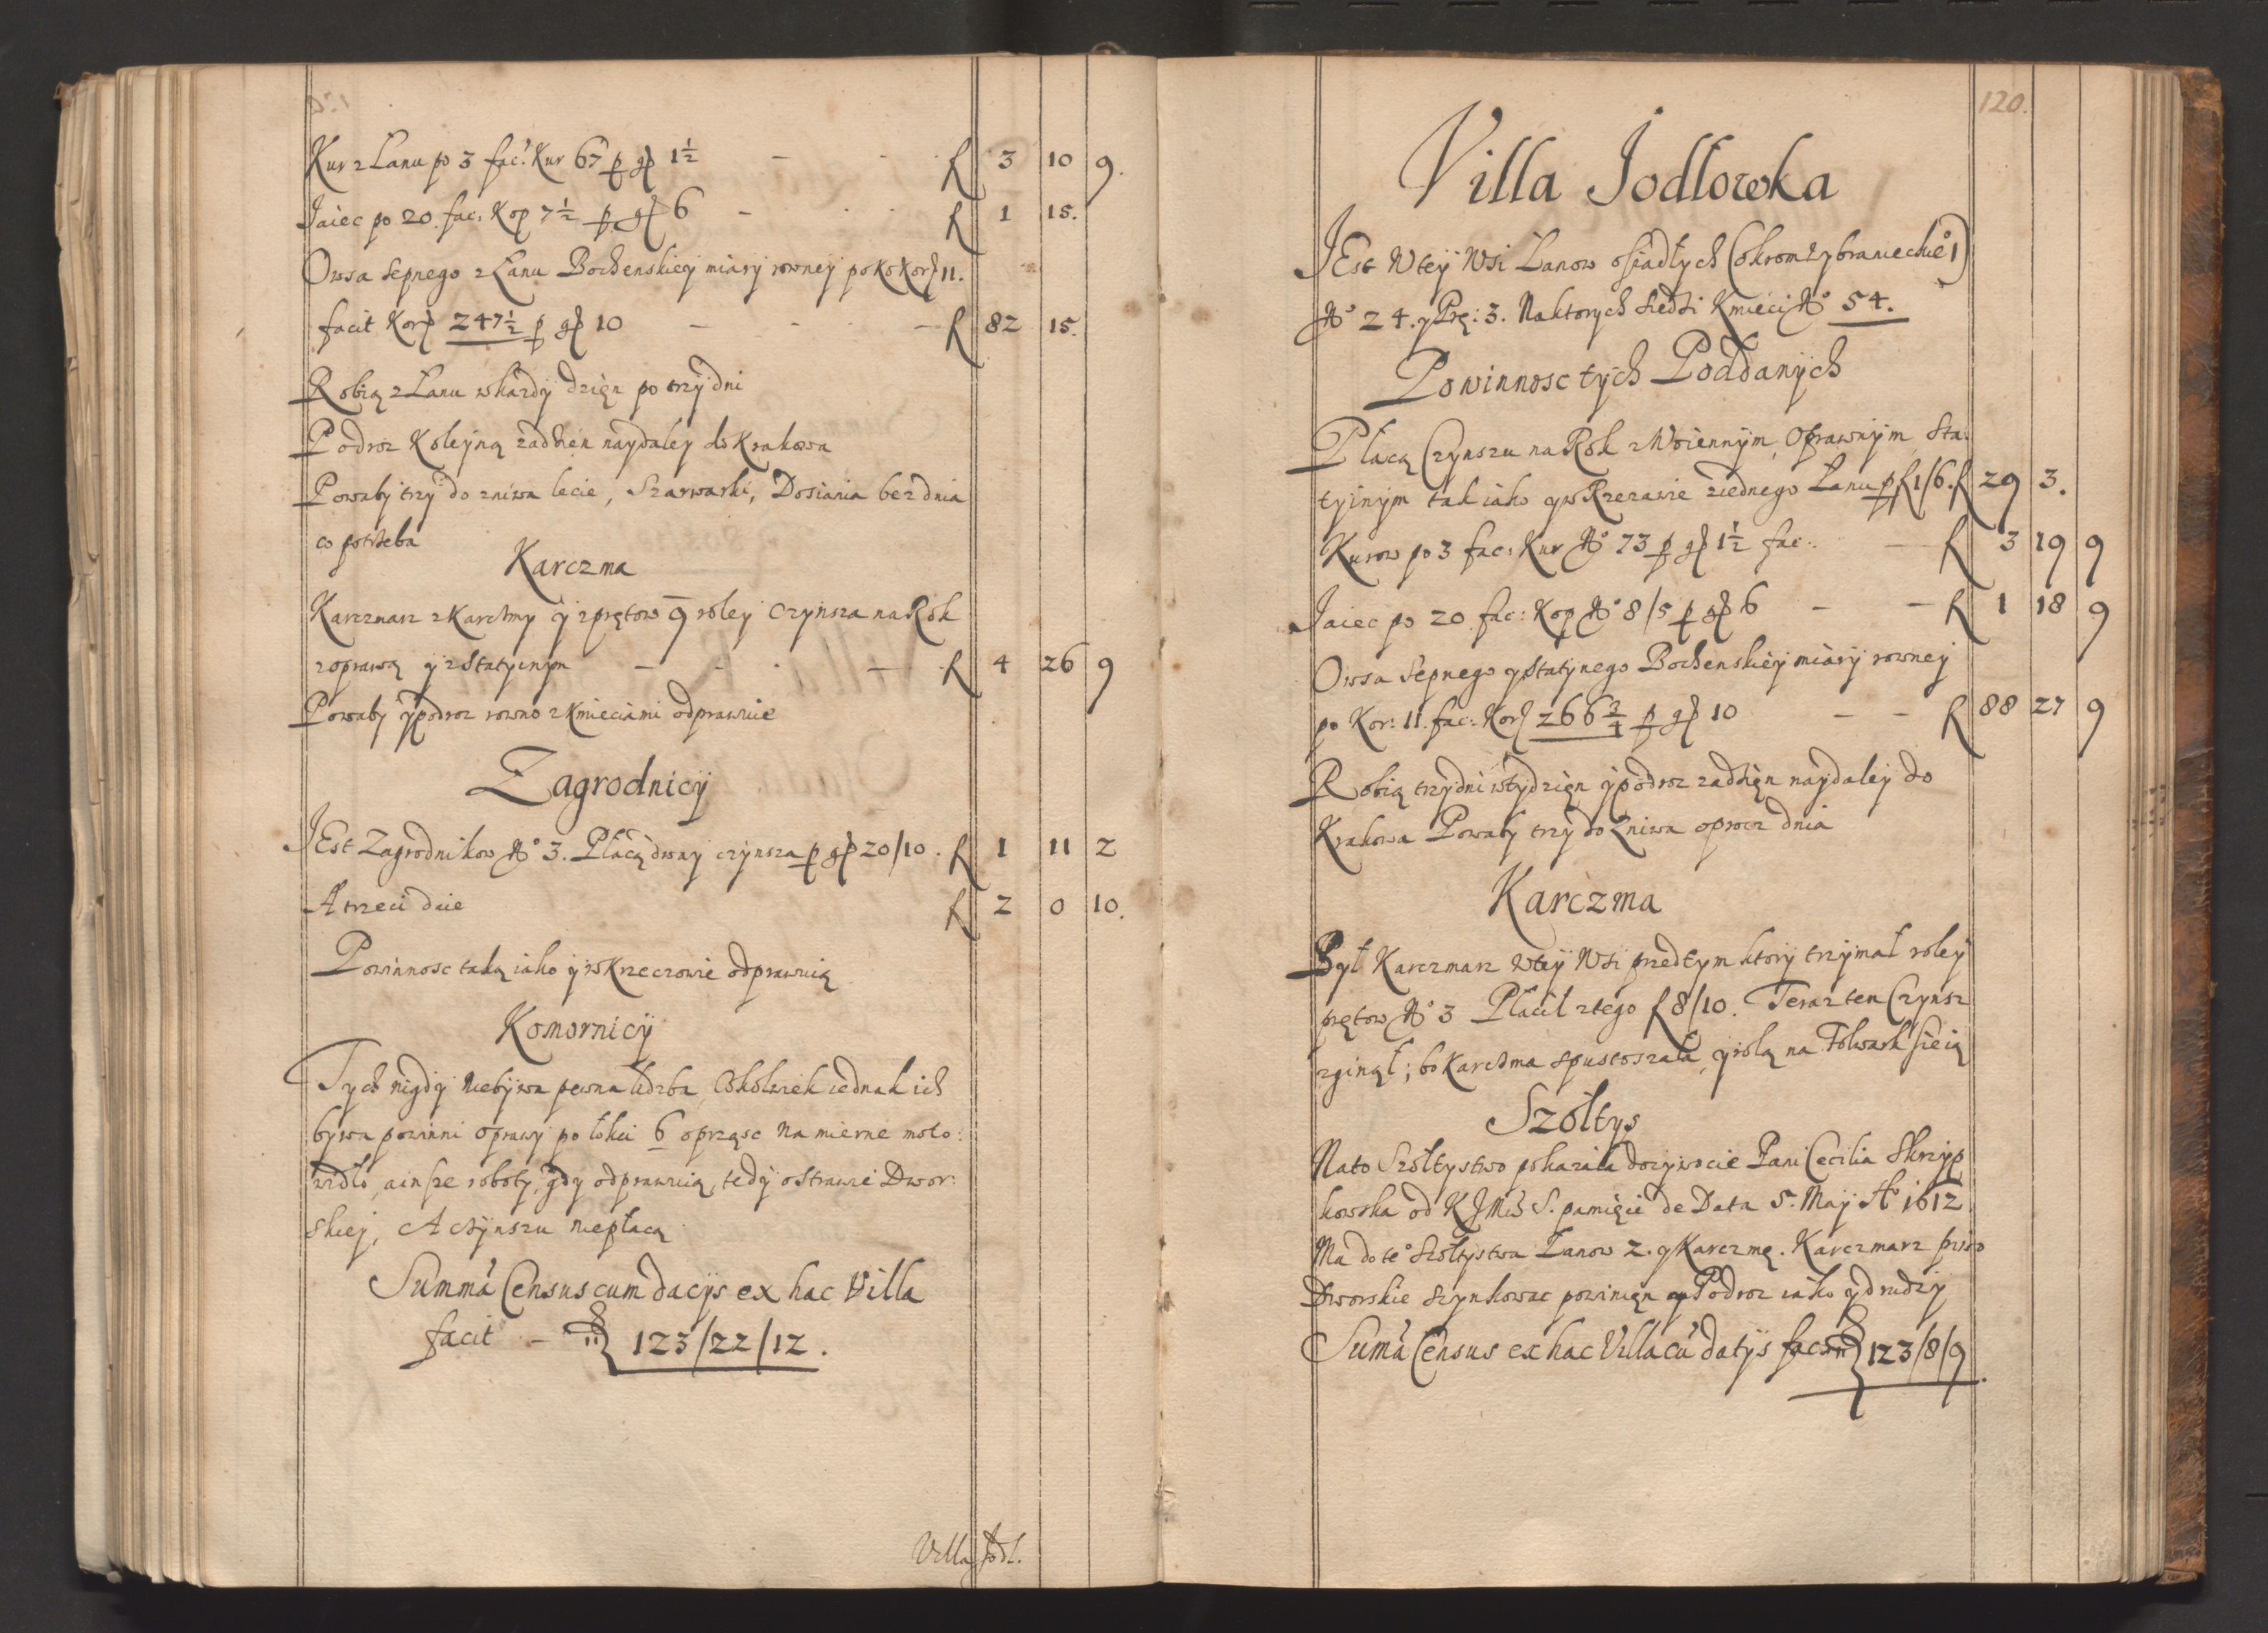 Kur z Lanu po 3 fac: Kur 67 p gł 1½ - f 3 10 9.
Jaiec po 20. fac: Kop 7½ p gł 6 - f 1 15.
Owsa sepnego z Lanu Bochenskiey miary rowney po Korz 11.
facit Korz 247½ p gł 10 - - - f 82 15.
Robią z Lanu wkażdy dzięn po trzy dni
Podroż Koleyną zaddzien naydaley do Krakowa
Powaby trzy do zniwa lecie, Szarwarki, Dosiania bez dnia
co potrzeba
Karczma
Karczmarz z Karczmy y zprętow 9 roley Czynsza na Rok
z oprawą y z Statycznym - - - f 4 26 9
Powaby y podroz rowno z Kmieciami odprawuie
Zagrodnicy
JEst Zagrodnikow No 3. Płacą dway czynsza p gł 20/10. f 1 11 2
A trzeci daie f 2 0 10.
Powinnosc taką iako y w Krzeczowie odprawuią
Komornicy
Tych nigdy niebywa pewna liczba, Cokolwiek iednak ich
bywa powinni oprawy po łokci 6 oprząsc Na mierne moto:
widło, a insze roboty gdy odprawuią, tedy o strawie Dwor:
skiey, A Czynszu niepłacą
Summa Census cum dacijs ex hac Villa
facit - 123/22/12.
Villa Jodl.
120.
Villa Jodlowka
JEst W tey Wsi Łanow osiadłych (okrom Wybranieckiego 1)
No 24. y Pręt: 3. Naktorych siedzi Kmieci No 54.
Powinnosc tych Poddanych
Płacą Czynszu na Rok z Woiennym, Oprawnym, Sta:
tyinym tak iako y w Rzezawie ziednego Łanu p f 1/6. f 29 3.
Kurow po 3 fac: Kur No 73 p gł 1½ fac: - f 3 19 9
Jaiec po 20. fac: Kop No 8/5 p gł 6 - - f 1 18 9
Owsa Sepnego y Statynego Bochenskiey miary rowney
po Kor: 11. fac: Korz 266¾ p gł 10 - - f 88 27 9
Robią trzy dni wtydzięn y podroz zaddzięn naydaley do
Krakowa Powaby trzy do Zniwa oprocz dnia
Karczma
Był Karczmarz w tey Wsi przedtym ktory trzymał roley
prętow No 3 Płacił ztego f 8/10. Teraz ten Czynsz
zginął; bo Karczma spustoszała, y rolą na Folwark sieią
Szołtys
Na to Szołtystwo pokazała dozywocie Pani Cecilia Skrzyp
kowska od K J Mci S. pamięci de Data 5. Maij Ao 1612
Ma do te° Szołtystwa Łanow 2. y Karczmę. Karczmarz piwo
Dworskie szynkowac powinięn y Podroz iako y drudzy
Suma Census ex hac Villa cu datijs fac 123/8/9.